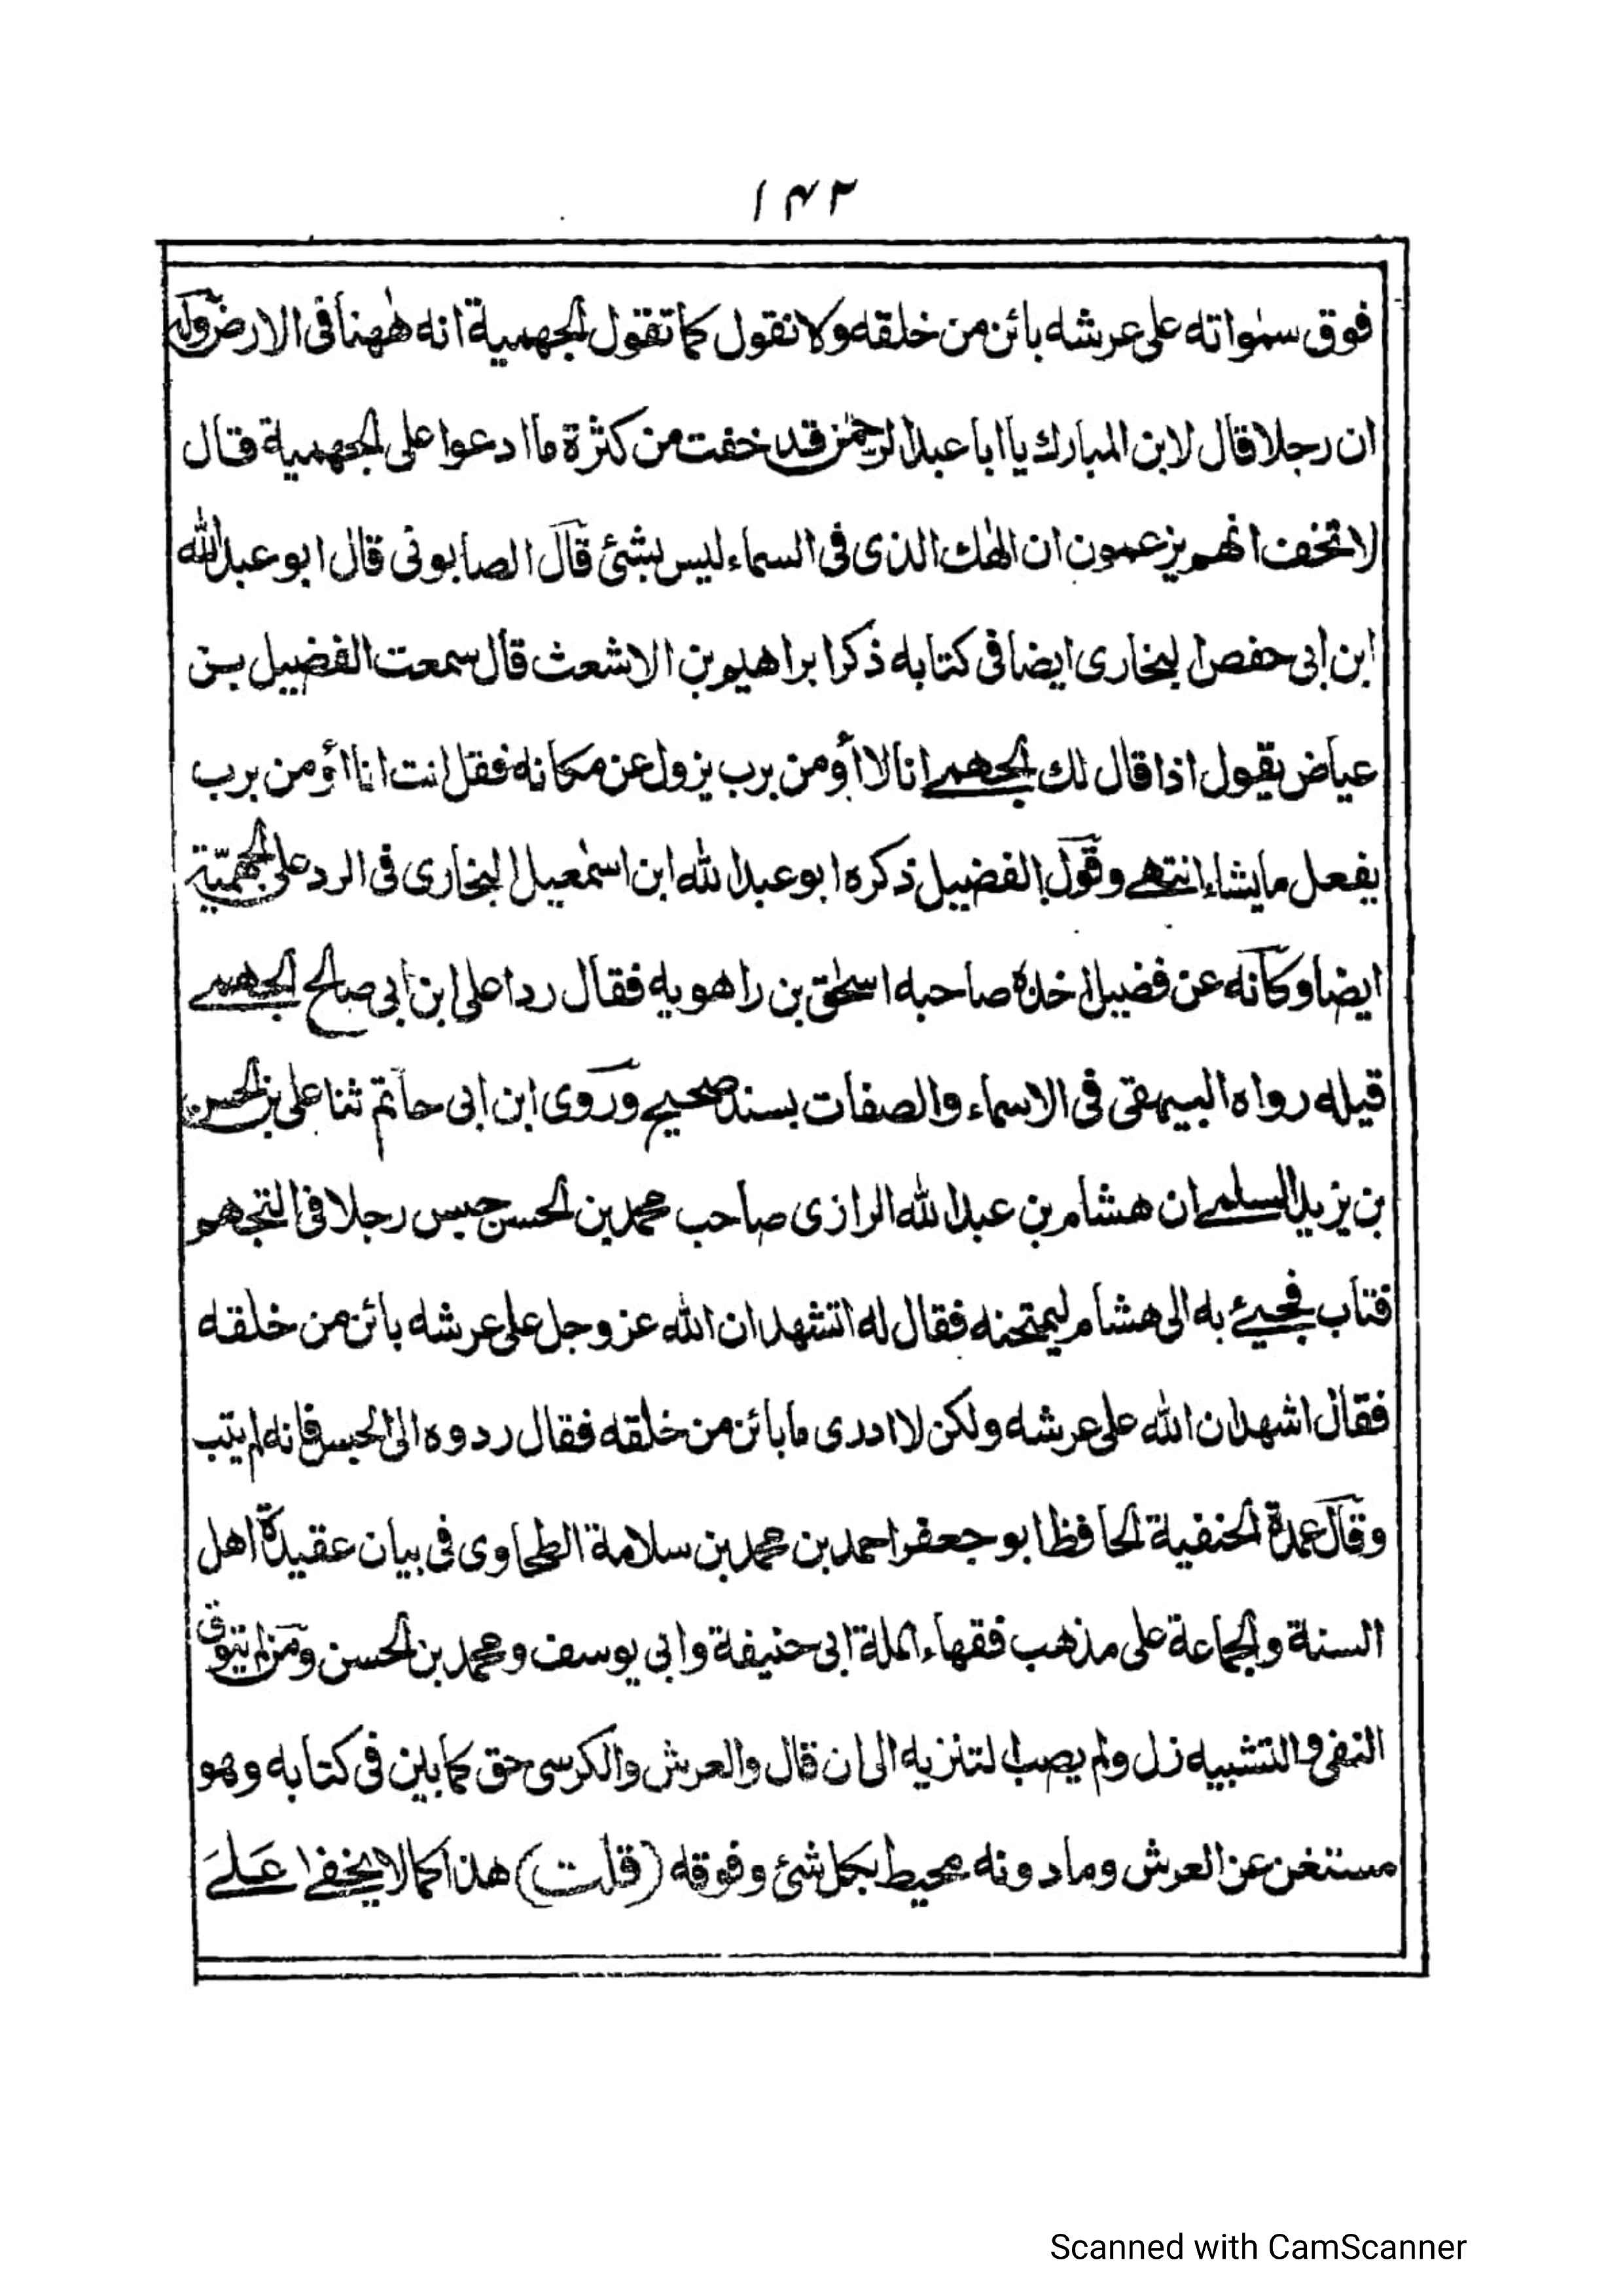 ۱۴۲
فوق سمٰواته على عرشه بائن من خلقه ولا نقول كما تقول الجهمية انه هٰهنا فى الارض وله
ان رجلا قال لابن المبارك يا ابا عبد الرحمٰن قد خفت من كثرة ما ادعوا على الجهمية قال
لا تخف انهم يزعمون ان الٰهك الذى فى السماء ليس بشئ قال الصابونى قال ابو عبد الله
ابن ابى حفص البخارى ايضا فى كتابه ذكر ابراهيم بن الاشعث قال سمعت الفضيل بن
عياض يقول اذا قال لك الجهمى انا لا أومن برب يزول عن مكانه فقل انت انا اؤمن برب
يفعل ما يشاء انتهى وقول الفضيل ذكره ابو عبد الله ابن اسمٰعيل البخارى فى الرد على الجهميّة
ايضا وكانه عن فضيل اخذه صاحبه اسحٰق بن راهويه فقال ردا على ابن ابى صالح الجهمى
قيله رواه البيهقى فى الاسماء والصفات بسند صحيح وروى ابن ابى حاتم ثنا على بن الحسن
بن يزيد السلمى ان هشام بن عبد الله الرازى صاحب محمد بن الحسن حبس رجلا فى التجهم
فتاب فجيئ به الى هشام ليمتحنه فقال له اتشهد ان الله عز وجل على عرشه بائن من خلقه
فقال اشهد ان الله على عرشه ولكن لا ادرى ما بائن من خلقه فقال ردوه الى الحبس فانه لم يتب
وقال عمدة الحنفية الحافظ ابو جعفر احمد بن محمد بن سلامة الطحاوى فى بيان عقيدة اهل
السنة والجماعة على مذهب فقهاء الملة ابى حنيفة وابى يوسف ومحمد بن الحسن ومن لم يتوق
النفى والتشبيه زل ولم يصب التنزيه الى ان قال والعرش والكرسى حق كما بين فى كتابه وهو
مستغن عن العرش وما دونه محيط بكل شئ وفوقه (قلت) هذا كما لا يخفى عَلىَ
Scanned with CamScanner